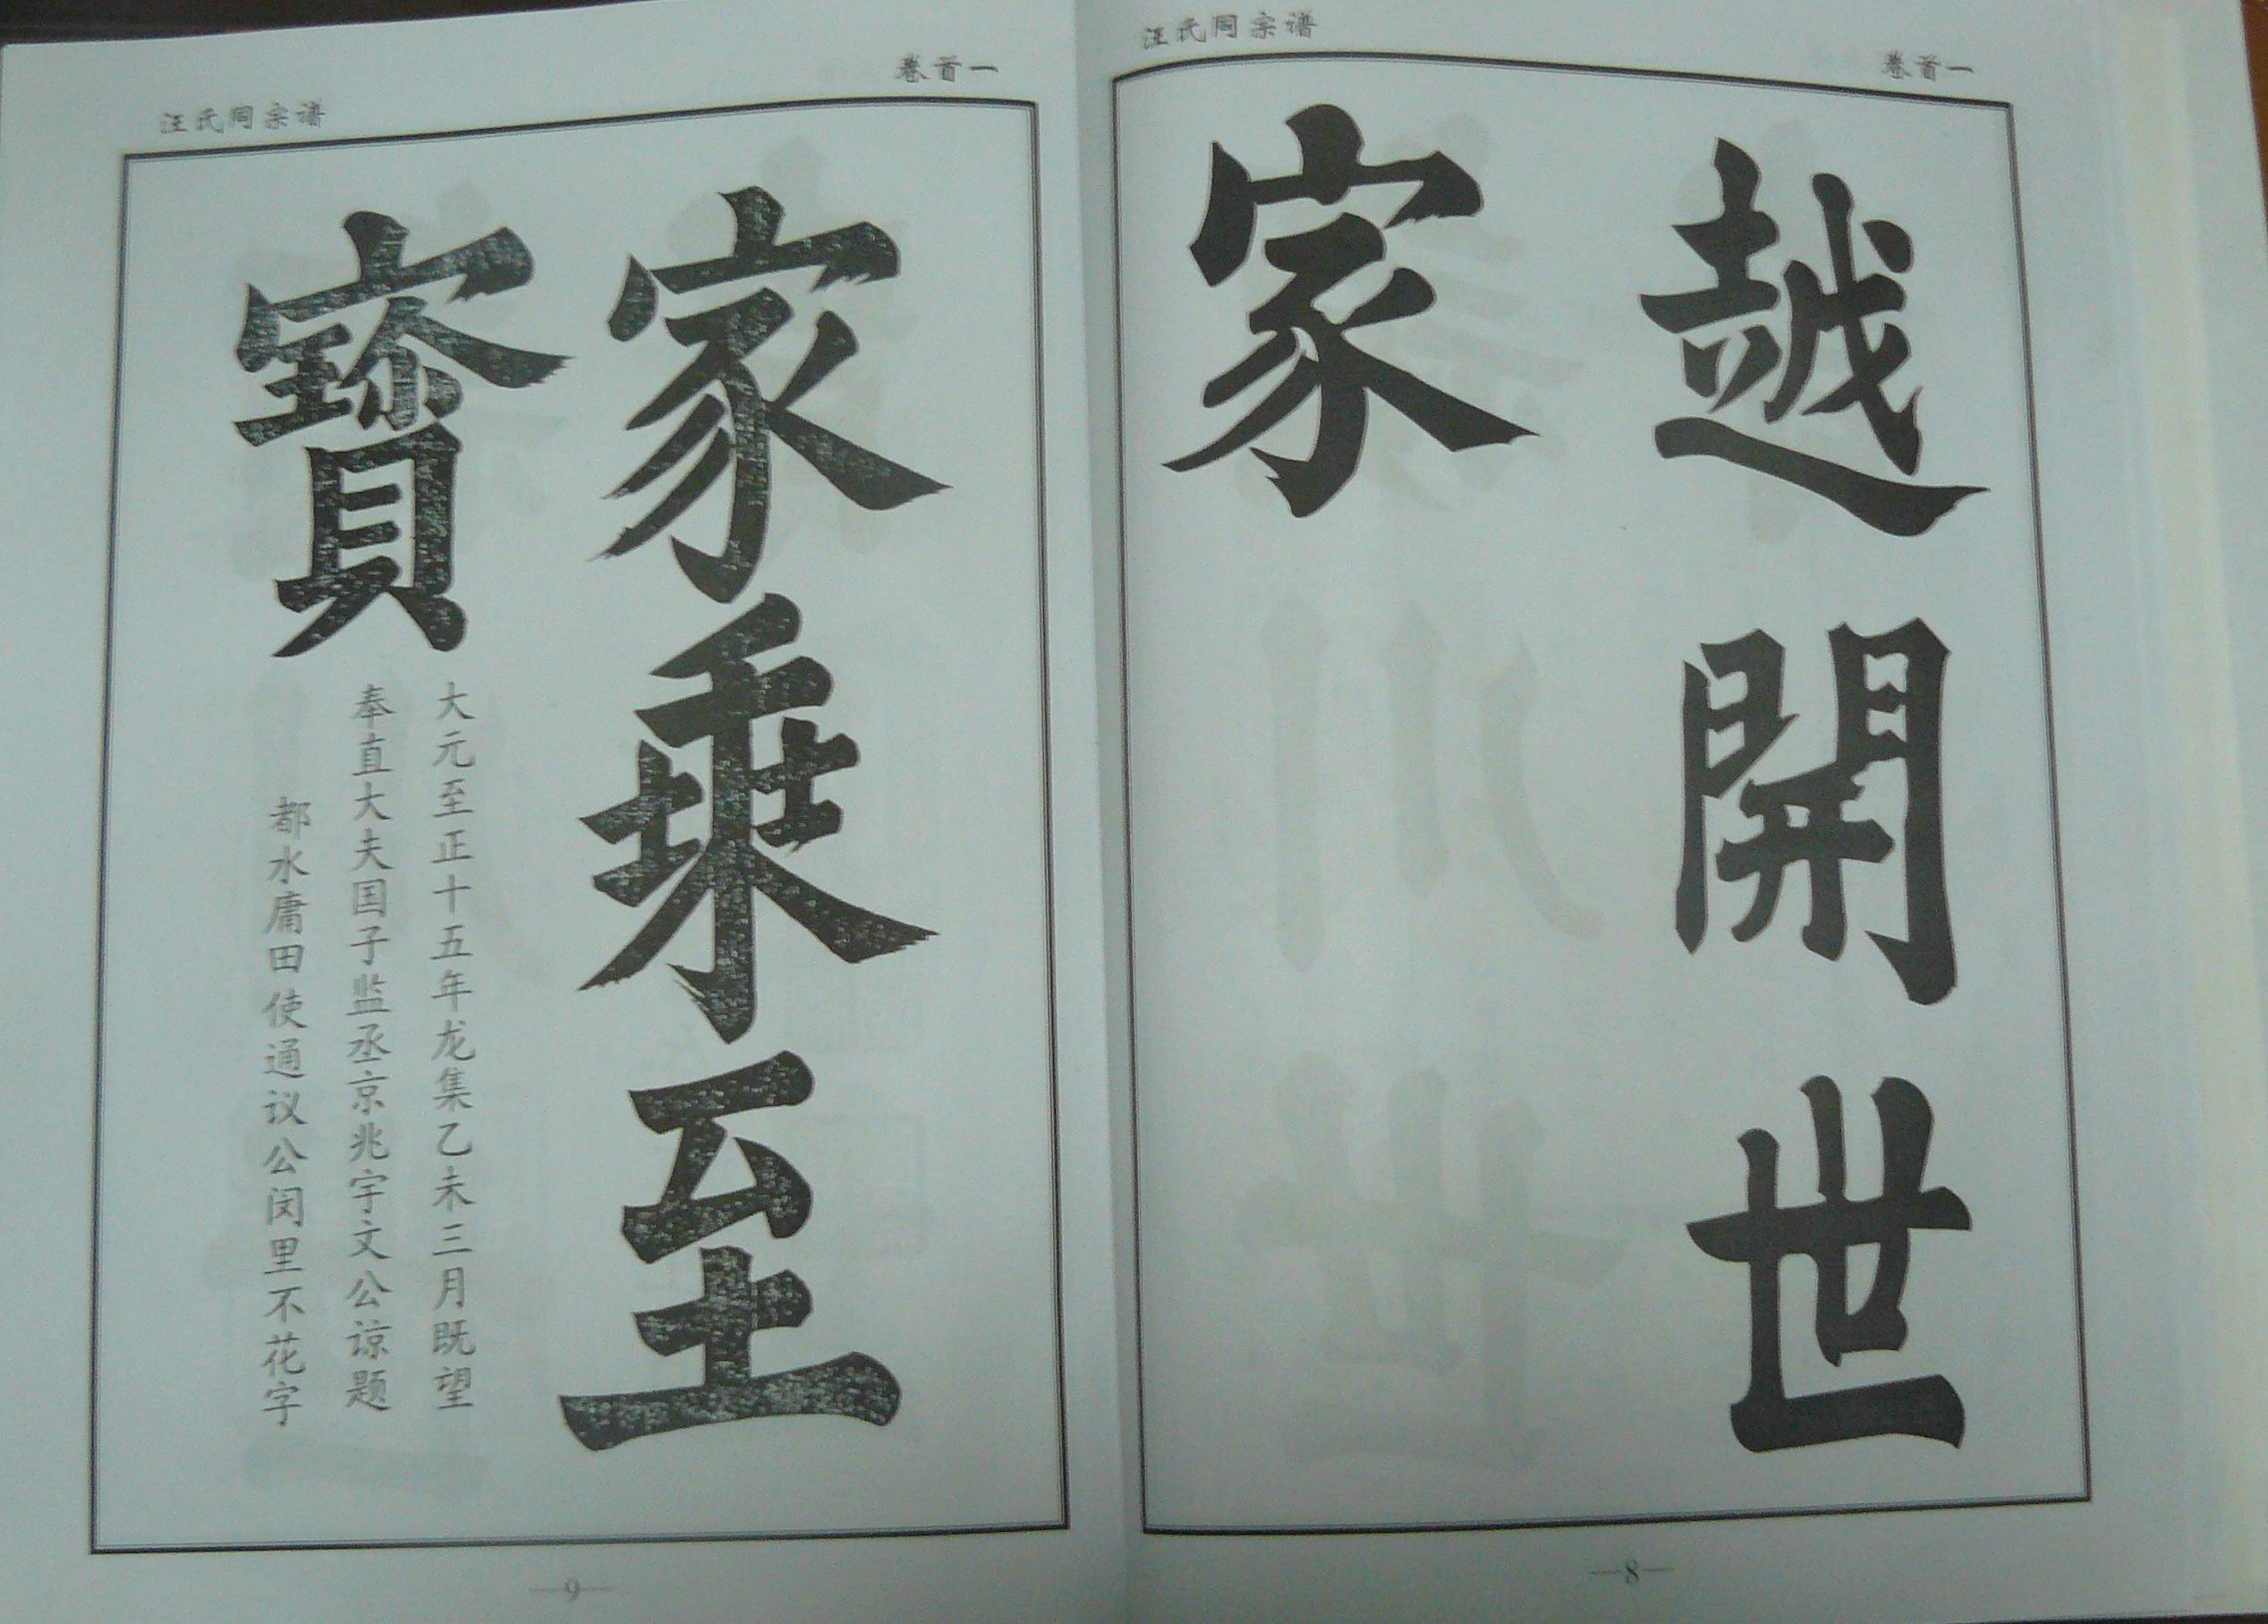 汪氏同宗谱
卷首一
越開世
家
—8—
汪氏同宗谱
卷首一
家乘至
寶
大元至正十五年龙集乙未三月既望
奉直大夫国子监丞京兆宇文公谅题
都水庸田使通议公闵里不花字
—9—